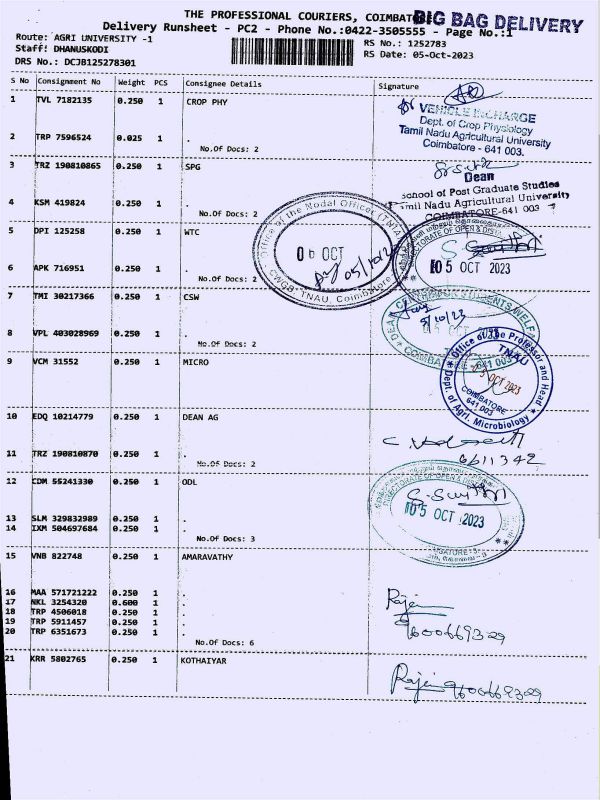 THE PROFESSIONAL COURIERS, COIMBAT
BIG BAG DELIVERY
Delivery Runsheet - PC2 - Phone No.:0422-3505555 - Page No.:1
Route: AGRI UNIVERSITY -1
RS No.: 1252783
Staff: DHANUSKODI
RS Date: 05-Oct-2023
DRS No.: DCJB125278301
S No Consignment No Weight PCS Consignee Details Signature
1 TVL 7182135 0.250 1 CROP PHY
VEHICLE INCHARGE
Dept. of Crop Physiology
Tamil Nadu Agricultural University
Coimbatore - 641 003.
2 TRP 7596524 0.025 1 .
No.Of Docs: 2
3 TRZ 190810865 0.250 1 SPG
Dean
School of Post Graduate Studies
Tamil Nadu Agricultural University
COIMBATORE-641 003
4 KSM 419824 0.250 1 .
No.Of Docs: 2
5 DPI 125258 0.250 1 WTC
Office of the Nodal Officer (TNIA
06 OCT
05/10/23
CWGB TNAU, Coimbatore
DIRECTORATE OF OPEN & DIST
05 OCT 2023
6 APK 716951 0.250 1 .
No.Of Docs: 2
7 TMI 30217366 0.250 1 CSW
STUDENTS WELFA
5/10/23
05 OCT
641 003
8 VPL 403028969 0.250 1 .
No.Of Docs: 2
9 VCM 31552 0.250 1 MICRO
Office of the Professor and Head
TNAU
05 OCT 2023
COIMBATORE
641 003
Dept. of Agrl. Microbiology
10 EDQ 10214779 0.250 1 DEAN AG
6611342
11 TRZ 190810870 0.250 1 .
No.Of Docs: 2
12 CDM 55241330 0.250 1 ODL
DIRECTORATE OF OPEN & DIST
05 OCT 2023
13 SLM 329832989 0.250 1 .
14 IXM 504697684 0.250 1 .
No.Of Docs: 3
15 VNB 822748 0.250 1 AMARAVATHY
16 MAA 571721222 0.250 1 .
17 NKL 3254320 0.600 1 .
18 TRP 4506018 0.250 1 .
19 TRP 5911457 0.250 1 .
20 TRP 6351673 0.250 1 .
No.Of Docs: 6
21 KRR 5802765 0.250 1 KOTHAIYAR